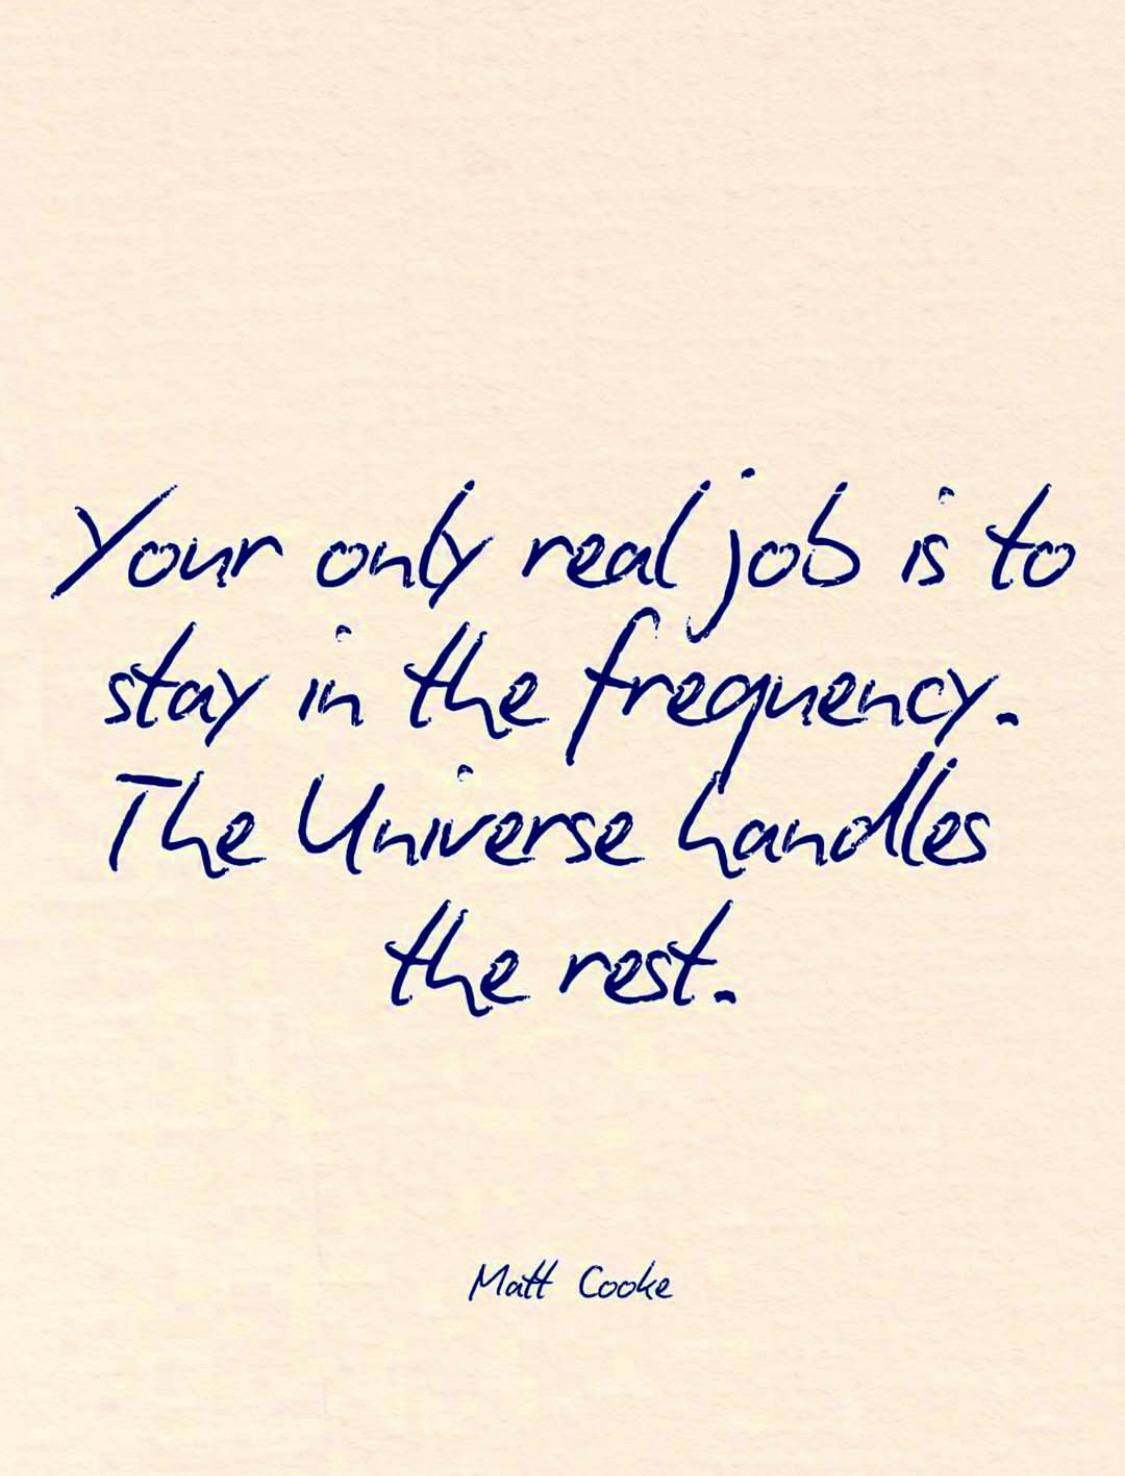 Your only real job is to
stay in the frequency.
The Universe handles
the rest.
Matt Cooke